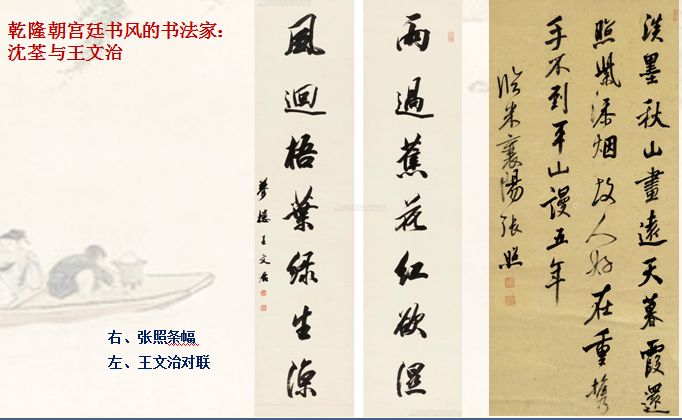 乾隆朝宫廷书风的书法家：
沈荃与王文治
淡墨秋山畫遠天暮霞還
照紫添烟故人好在重攜
手不到平山謾五年
臨米襄陽張照
雨過蕉花紅欲濕
風迴梧葉緑生涼
夢樓王文治
右、张照条幅
左、王文治对联